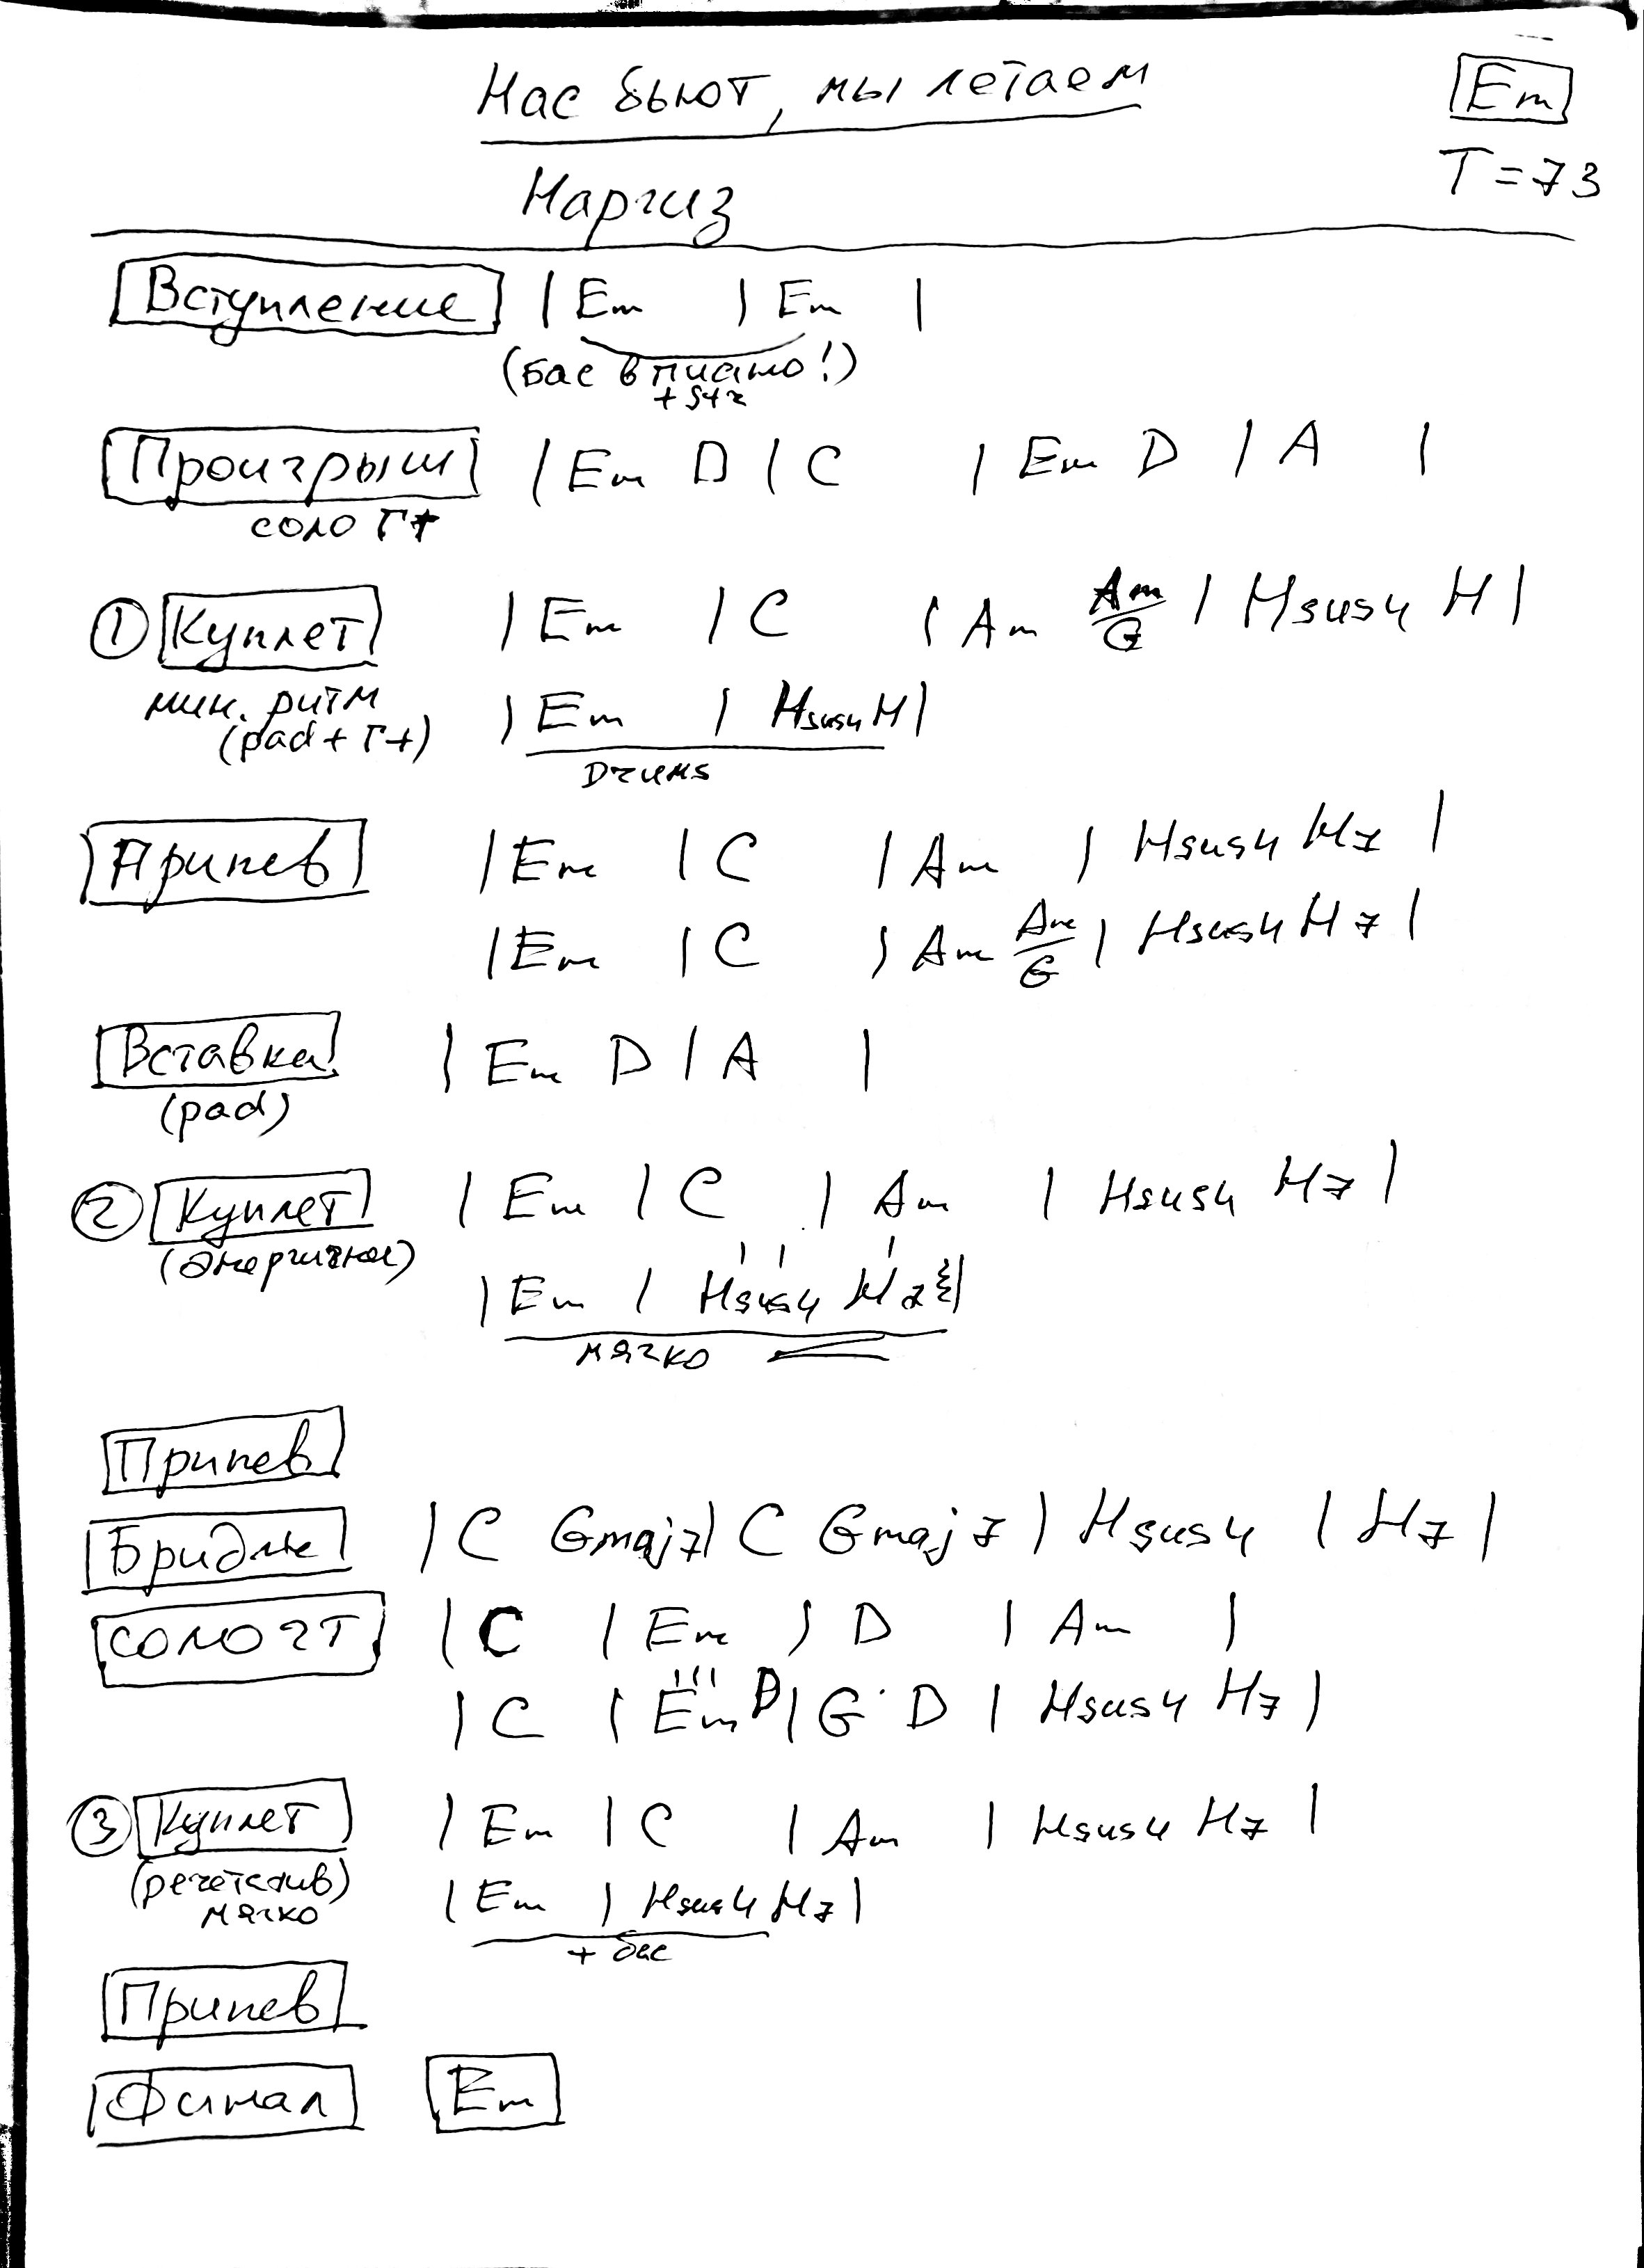 Нас бьют, мы летаем
Em
T=73
Наргиз
Вступление | Em | Em |
(бас в пиано!)
+ Str
Проигрыш | Em D | C | Em D | A |
соло Гт
① Куплет | Em | C | Am Am/G | Hsus4 H |
мин. ритм | Em | Hsus4 H |
(pad + Гт)
Drums
Припев | Em | C | Am | Hsus4 H7 |
| Em | C | Am Am/G | Hsus4 H7 |
Вставка | Em D | A |
(pad)
② Куплет | Em | C | Am | Hsus4 H7 |
(энергичнее)
| Em | Hsus4 H7 |
мягко
Припев
Бридж | C Gmaj7 | C Gmaj7 | Hsus4 | H7 |
соло гт | C | Em | D | Am |
| C | Em D | G D | Hsus4 H7 |
③ Куплет | Em | C | Am | Hsus4 H7 |
(речетатив)
мягко | Em | Hsus4 H7 |
+ бас
Припев
Финал Em